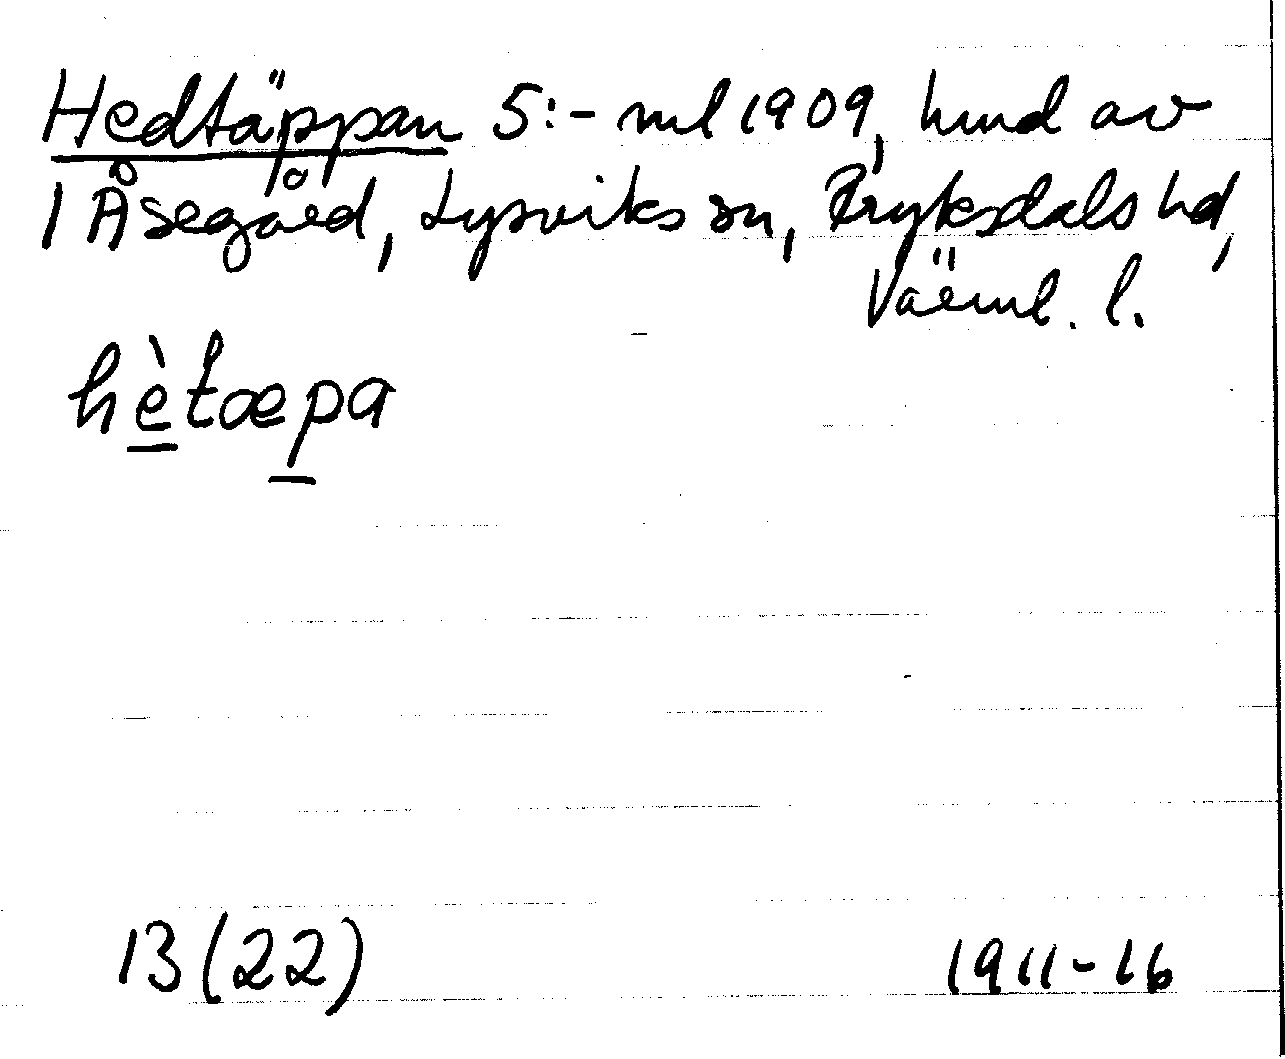 Hedtäppan 5:- ml 1909, hmd av
1 Åsegård, Lysviks sn, Fryksdals hd,
Värml. l.
hètæpa
13 (22)
1911-16